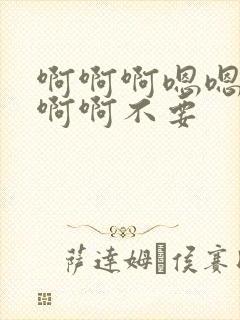 啊啊啊嗯嗯
啊啊不要
萨达姆·侯赛